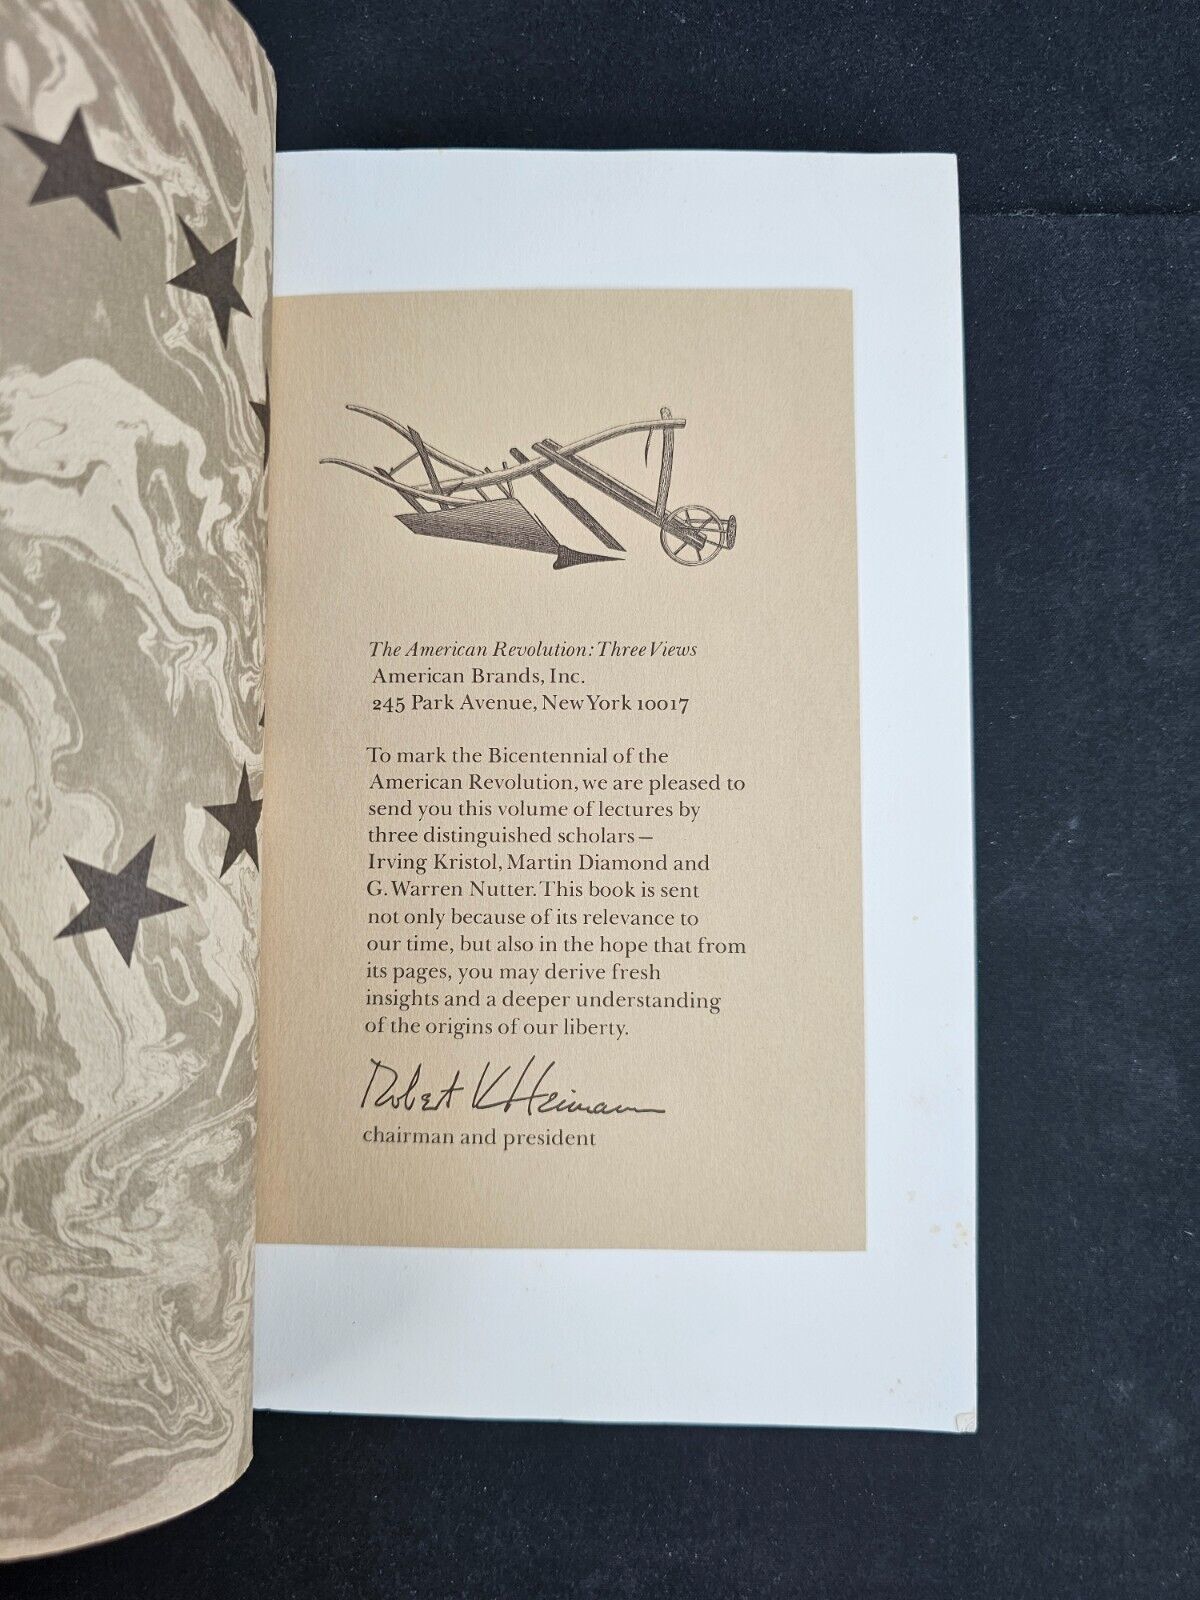 The American Revolution: Three Views
American Brands, Inc.
245 Park Avenue, New York 10017
To mark the Bicentennial of the
American Revolution, we are pleased to
send you this volume of lectures by
three distinguished scholars—
Irving Kristol, Martin Diamond and
G. Warren Nutter. This book is sent
not only because of its relevance to
our time, but also in the hope that from
its pages, you may derive fresh
insights and a deeper understanding
of the origins of our liberty.
Robert K Heimann
chairman and president